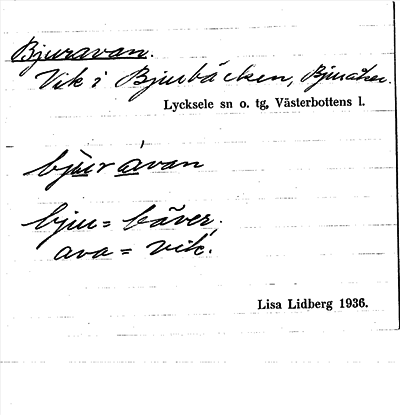 Bjuravan.
Vik i Bjurbäcken, Bjuråker.
Lycksele sn o. tg, Västerbottens l.
bjur avan
bju = bäver.
ava = vik.
Lisa Lidberg 1936.